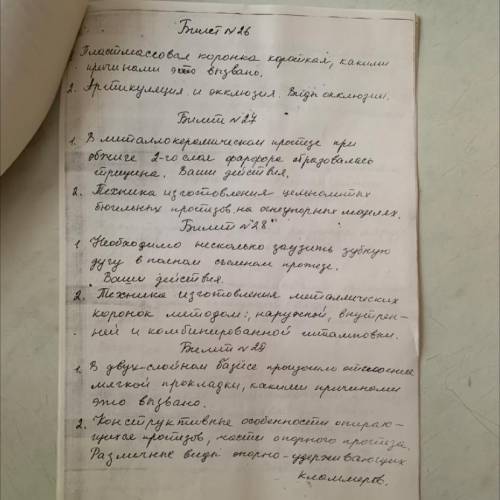 Билет №26
Пластмассовая коронка короткая, какими
причинами это вызвано.
2. Артикуляция и окклюзия. Виды окклюзии.
Билет №27
1. В металлокерамическом протезе при
обжиге 2-го слоя фарфора образовалась
трещина. Ваши действия.
2. Техника изготовления цельнолитых
бюгельных протезов на огнеупорных моделях.
Билет №28
1 Необходимо несколько заузить зубную
дугу в полном съемном протезе.
Ваши действия.
2. Техника изготовления металлических
коронок методом: наружной, внутрен-
ней и комбинированной штамповки.
Билет №29
1. В двух-слойном базисе произошло отслоение
мягкой прокладки, какими причинами
это вызвано.
2. Конструктивные особенности опираю-
щихся протезов, части опорного протеза.
Различные виды опорно-удерживающих
кламмеров.